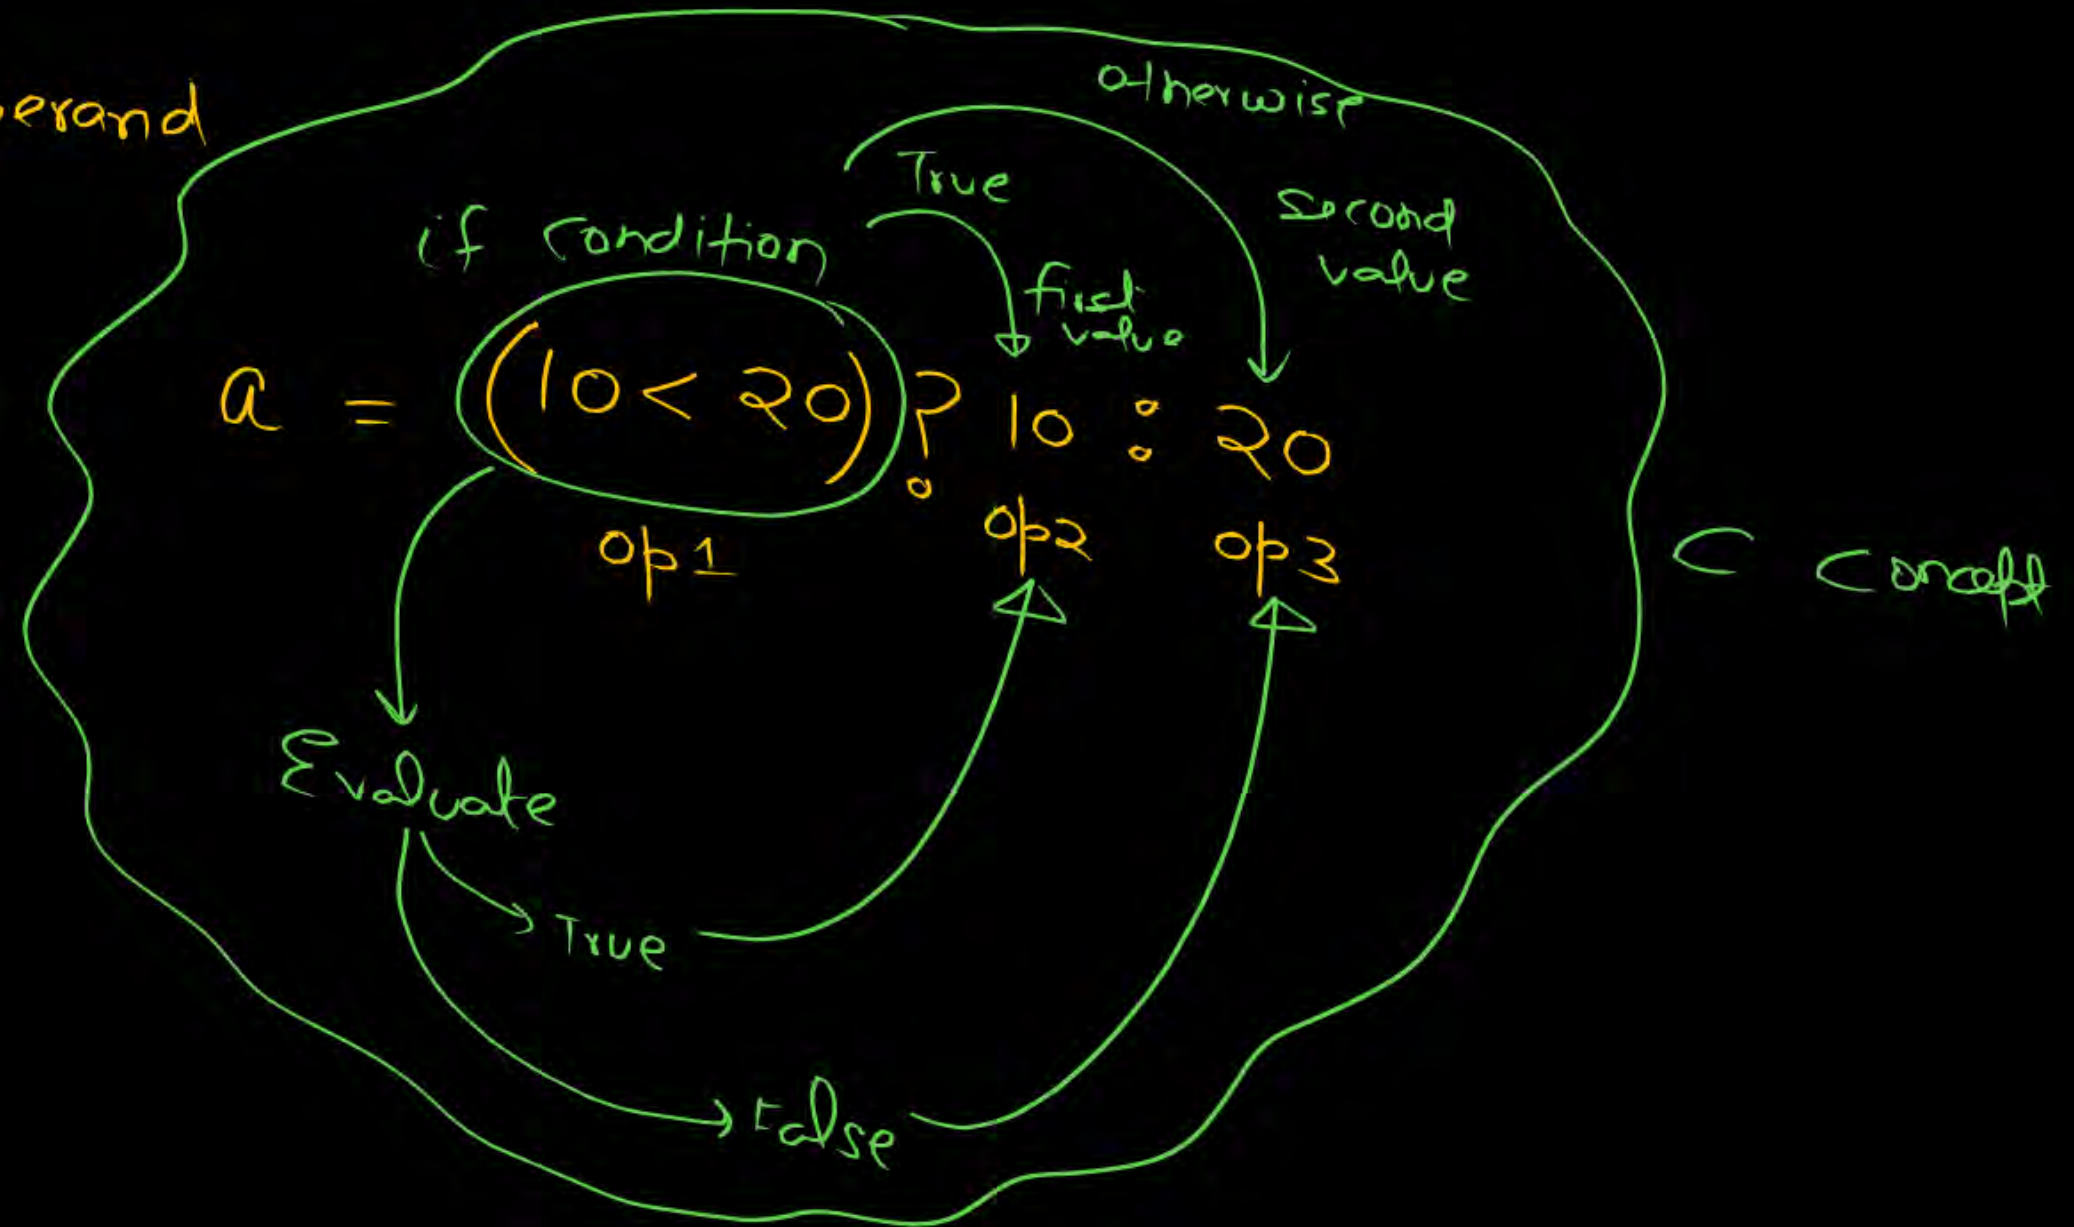 erand
otherwise
True
if condition
second
value
first
value
a = (10 < 20) ? 10 : 20
op1 op2 op3
C Concept
Evaluate
True
False